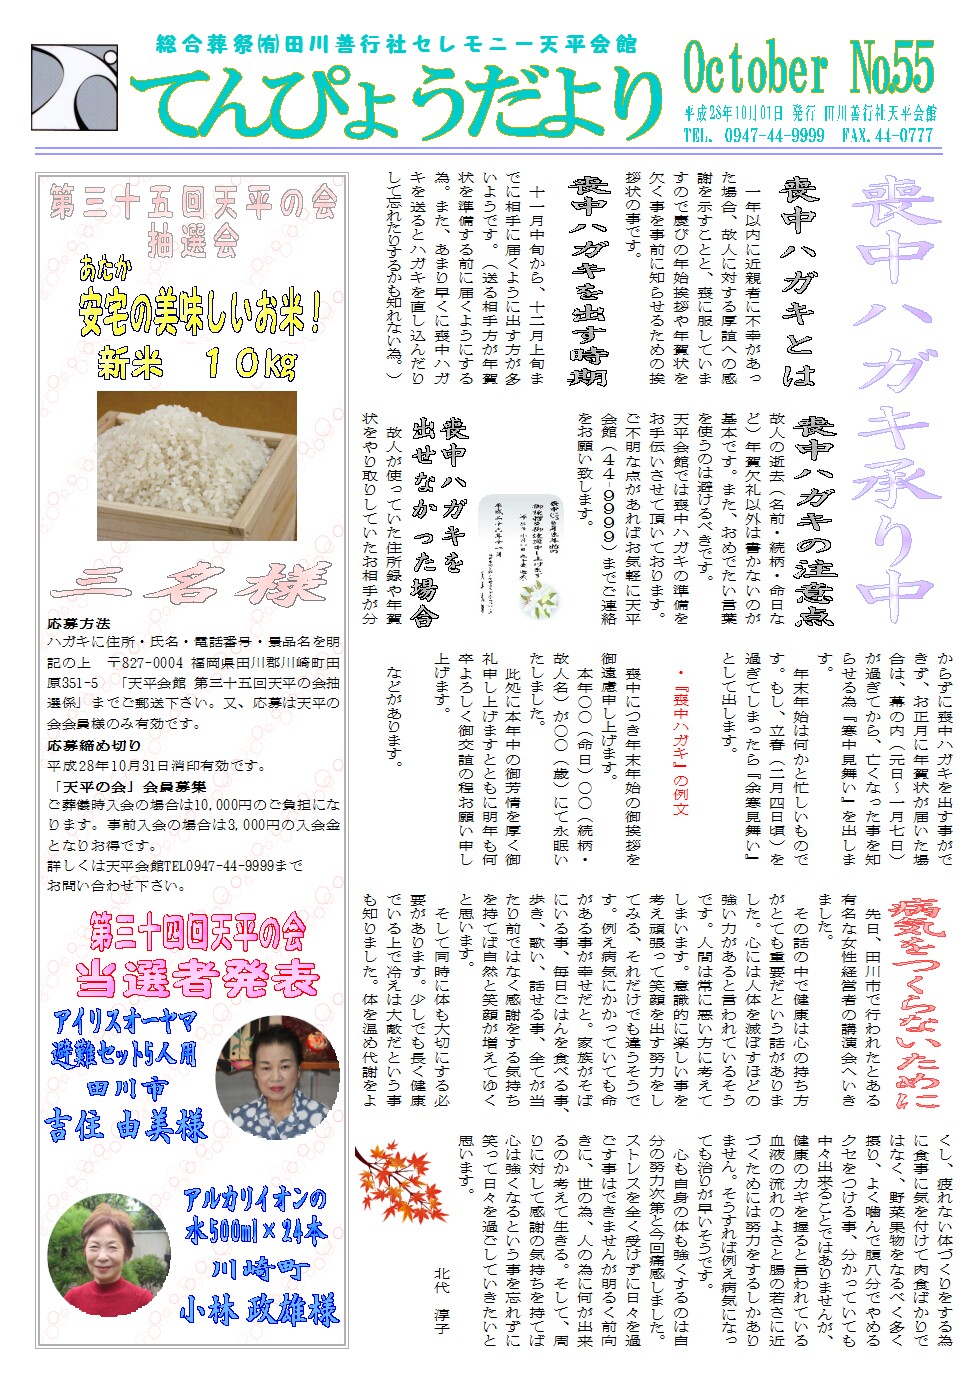 総合葬祭㈲田川善行社セレモニー天平会館
てんぴょうだより
October No.55
平成28年10月01日 発行 田川善行社天平会館
TEL. 0947-44-9999 FAX.44-0777
喪中ハガキ承り中
喪中ハガキとは
一年以内に近親者に不幸があっ
た場合、故人に対する厚誼への感
謝を示すことと、喪に服していま
すので慶びの年始挨拶や年賀状を
欠く事を事前に知らせるための挨
拶状の事です。
喪中ハガキを出す時期
十一月中旬から、十二月上旬ま
でに相手に届くように出す方が多
いようです。（送る相手方が年賀
状を準備する前に届くようにする
為。また、あまり早くに喪中ハガ
キを送るとハガキを直し込んだり
して忘れたりするかも知れない為。）
喪中ハガキの注意点
故人の逝去（名前・続柄・命日な
ど）年賀欠礼以外は書かないのが
基本です。また、おめでたい言葉
を使うのは避けるべきです。
天平会館では喪中ハガキの準備を
お手伝いさせて頂いております。
ご不明な点があればお気軽に天平
会館（４４-９９９９）までご連絡
をお願い致します。
喪中ハガキを
出せなかった場合
故人が使っていた住所録や年賀
状をやり取りしていたお相手が分
からずに喪中ハガキを出す事がで
きず、お正月に年賀状が届いた場
合は、幕の内（元日～一月七日）
が過ぎてから、亡くなった事を知
らせる為『寒中見舞い』を出しま
す。
年末年始は何かと忙しいもので
す。もし、立春（二月四日頃）を
過ぎてしまったら『余寒見舞い』
として出します。
・『喪中ハガキ』の例文
喪中につき年末年始の御挨拶を
御遠慮申し上げます。
本年〇〇（命日）〇〇（続柄・
故人名）が〇〇（歳）にて永眠い
たしました。
此処に本年中の御芳情を厚く御
礼申し上げますとともに明年も何
卒よろしく御交誼の程お願い申し
上げます。
などがあります。
病気をつくらないために
先日、田川市で行われたとある
有名な女性経営者の講演会へいき
ました。
その話の中で健康は心の持ち方
がとても重要だという話がありま
した。心には人体を滅ぼすほどの
強い力があると言われているそう
です。人間は常に悪い方に考えて
しまいます。意識的に楽しい事を
考え頑張って笑顔を出す努力をし
てみる、それだけでも違うそうで
す。例え病気にかかっていても命
がある事が幸せだと。家族がそば
にいる事、毎日ごはんを食べる事、
歩き、歌い、話せる事、全てが当
たり前ではなく感謝をする気持ち
を持てば自然と笑顔が増えてゆく
と思います。
そして同時に体も大切にする必
要があります。少しでも長く健康
でいる上で冷えは大敵だという事
も知りました。体を温め代謝をよ
くし、疲れない体づくりをする為
に食事に気を付けて肉食ばかりで
はなく、野菜果物をなるべく多く
摂り、よく噛んで腹八分でやめる
クセをつける事、分かっていても
中々出来ることではありませんが、
健康のカギを握ると言われている
血液の流れのよさと腸の若さに近
づくためには努力をするしかあり
ません。そうすれば例え病気になっ
ても治りが早いそうです。
心も自身の体も強くするのは自
分の努力次第と今回痛感しました。
ストレスを全く受けずに日々を過
ごす事はできませんが明るく前向
きに、世の為、人の為に何が出来
るのか考えて生きる。そして、周
りに対して感謝の気持ちを持てば
心は強くなるという事を忘れずに
笑って日々を過ごしていきたいと
思います。
北代 淳子
第三十五回天平の会
抽選会
あたか
安宅の美味しいお米！
新米 １０kg
三名様
応募方法
ハガキに住所・氏名・電話番号・景品名を明
記の上 〒827-0004 福岡県田川郡川崎町田
原351-5 「天平会館 第三十五回天平の会抽
選係」までご郵送下さい。又、応募は天平の
会会員様のみ有効です。
応募締め切り
平成28年10月31日消印有効です。
「天平の会」会員募集
ご葬儀時入会の場合は10,000円のご負担にな
ります。事前入会の場合は3,000円の入会金
となりお得です。
詳しくは天平会館TEL0947-44-9999まで
お問い合わせ下さい。
第三十四回天平の会
当選者発表
アイリスオーヤマ
避難セット5人用
田川市
吉住 由美様
アルカリイオンの
水500ml×24本
川崎町
小林 政雄様